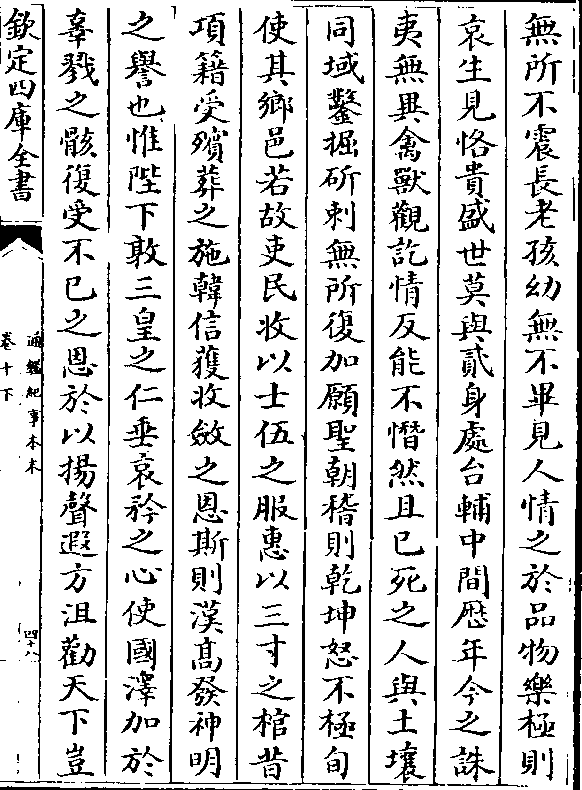 無所不震長老孩幼無不畢見人情之於品物樂極則
哀生見恪貴盛世莫與貳身處台輔中間歴年今之誅
夷無異禽獸觀訖情反能不憯然且已死之人與土壤
同域鑿掘斫刺無所復加願聖朝稽則乾坤怒不極旬
使其鄉邑若故吏民收以士伍之服惠以三寸之棺昔
項籍受殯葬之施韓信獲收斂之恩斯則漢高發神明
之譽也惟陛下敦三皇之仁垂哀矜之心使國澤加於
辜戮之骸復受不已之恩於以揚聲遐方沮勸天下豈
欽定四庫全書
通鑑紀事本末
卷十下
四十八